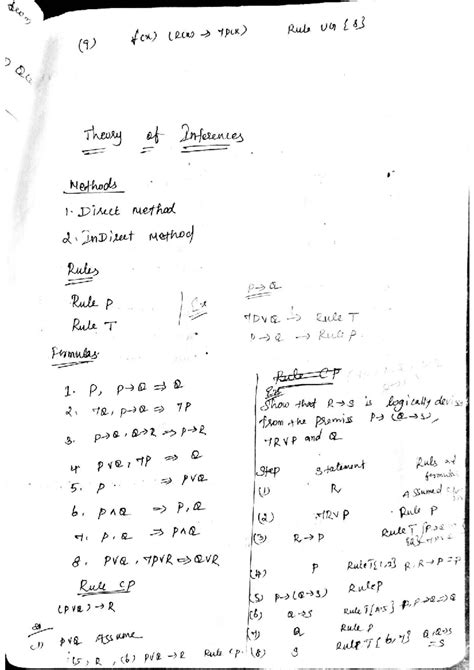 (9) ∀(x) (R(x) → ¬P(x)) Rule UG {8}
Theory of Inferences
Methods
1. Direct method
2. InDirect method
Rules
Rule P
Rule T
Ex
P→Q
¬P∨Q → Rule T
P→Q → Rule P
Formulas
1. P, P→Q ⇒ Q
2. ¬Q, P→Q ⇒ ¬P
3. P→Q, Q→R ⇒ P→R
4. P∨Q, ¬P ⇒ Q
5. P ⇒ P∨Q
6. P∧Q ⇒ P, Q
7. P, Q ⇒ P∧Q
8. P∨Q, ¬P∨R ⇒ Q∨R
Rule CP
(P∨Q)→R
(1) P∨Q Assume
(5) R, (6) P∨Q→R Rule CP
Rule CP
Show that R→S is logically
from the premis P→(Q→S),
¬R∨P and Q
Step Statement Ruls and
formula
(1) R Assumed
(2) ¬R∨P Rule P
(3) R→P Rule T
(4) P Rule T{1,3} R, R→P ⇒ P
(5) P→(Q→S) Rule P
(6) Q→S Rule T{4,5} P, P→Q⇒Q
(7) Q Rule P
(8) S Rule T{6,7} Q, Q→S
⇒S